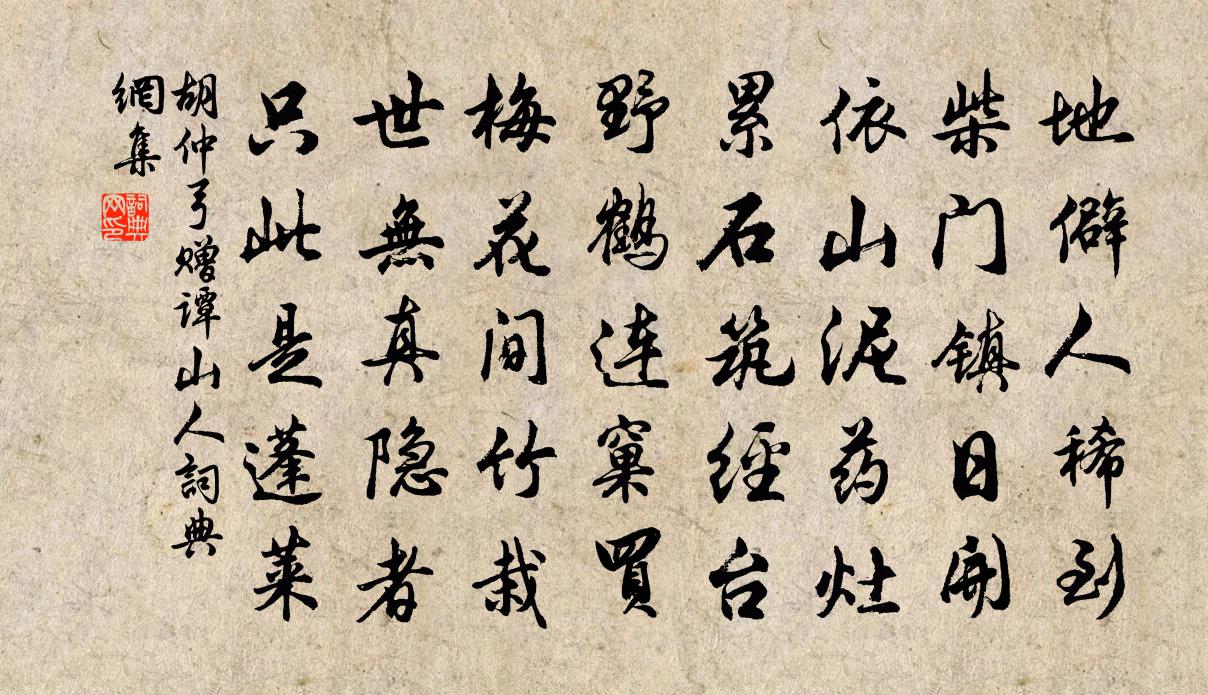 地僻人稀到
柴门镇日開
依山泥药灶
累石筑經台
野鶴連窠買
梅花间竹栽
世無真隐者
只此是蓬莱
胡仲弓赠谭山人詞典
網集
詞典
网印